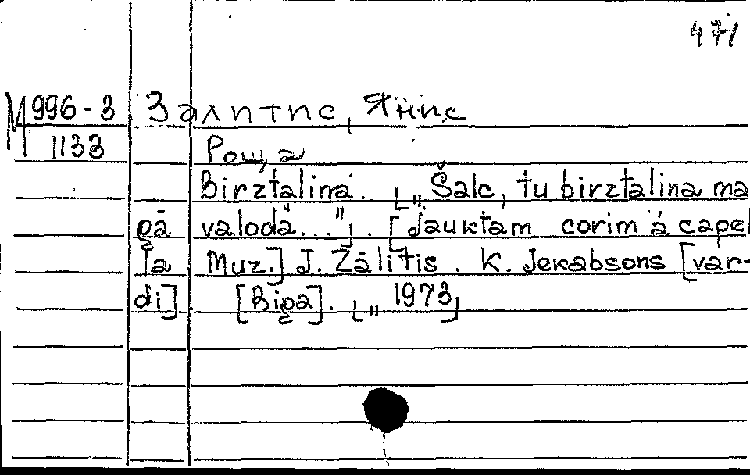 471
М996-3 Залитис, Янис
1133 Роща
Birztaliņā. [„Šalc, tu birztaliņa ma
gā valodā..."]. [Jauktam corim a capel
la Muz.] J. Zālītis. K. Jēkabsons [vār-
di] [Rīga]. [„ 1973]